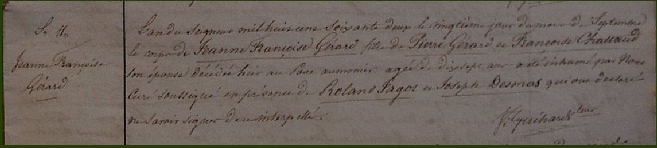 Jeanne Françoise
Gérard
L'an du Seigneur mil huit cent soixante deux le vingtième jour du mois de Septembre
le corps de Jeanne Françoise Gérard fille de Pierre Gérard et Françoise Chassaud
son épouse décédée hier au Pont agée de dixsept ans a été inhumé par Nous
Curé soussigné en présence de Roland Pagot et Joseph Desmas qui ont déclaré
ne savoir signer de ce interpellés.